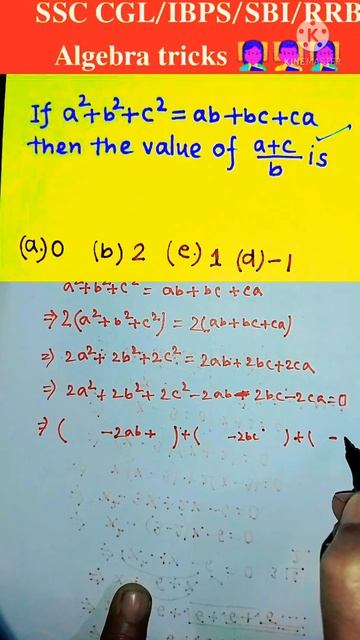 SSC CGL/IBPS/SBI/RRB
Algebra tricks
KINEMASTER
If a²+b²+c² = ab+bc+ca
then the value of (a+c)/b is
(a.) 0 (b) 2 (c.) 1 (d) -1
a²+b²+c² = ab+bc+ca
⇒ 2(a²+b²+c²) = 2(ab+bc+ca)
⇒ 2a²+2b²+2c² = 2ab+2bc+2ca
⇒ 2a²+2b²+2c²-2ab-2bc-2ca=0
⇒ ( -2ab+ )+( -2bc )+( -